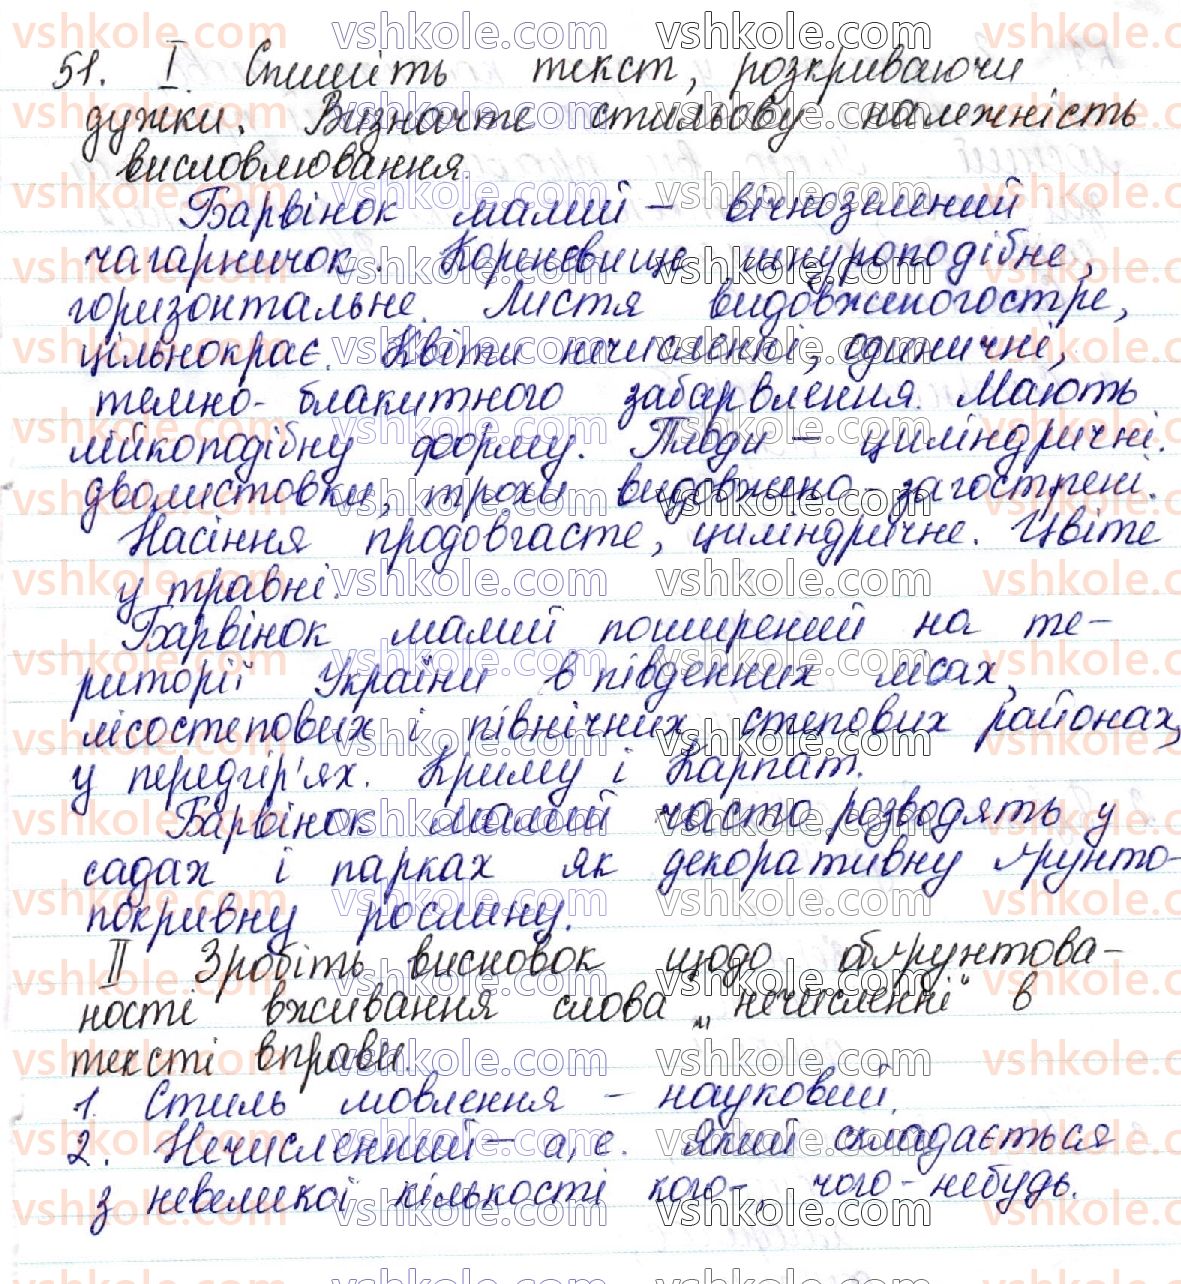 51. І. Спишіть текст, розкриваючи
дужки. Визначте стильову належність
висловлювання.
Барвінок малий – вічнозелений
чагарничок. Кореневище шнуроподібне,
горизонтальне. Листя видовженогостре,
цільнокрає. Квіти нечисленні, одиничні,
темно-блакитного забарвлення. Мають
лійкоподібну форму. Плоди – циліндричні.
дволистовки, трохи видовжено-загострені.
Насіння продовгасте, циліндричне. Цвіте
у травні.
Барвінок малий поширений на те-
риторії України в південних лісах,
лісостепових і північних степових районах,
у передгір'ях. Криму і Карпат.
Барвінок малий часто розводять у
садах і парках як декоративну ґрунто-
покривну рослину.
ІІ Зробіть висновок щодо обґрунтова-
ності вживання слова „нечисленні" в
тексті вправи.
1. Стиль мовлення – науковий.
2. Нечисленний – а, е. Який складається
з невеликої кількості кого-, чого-небудь.